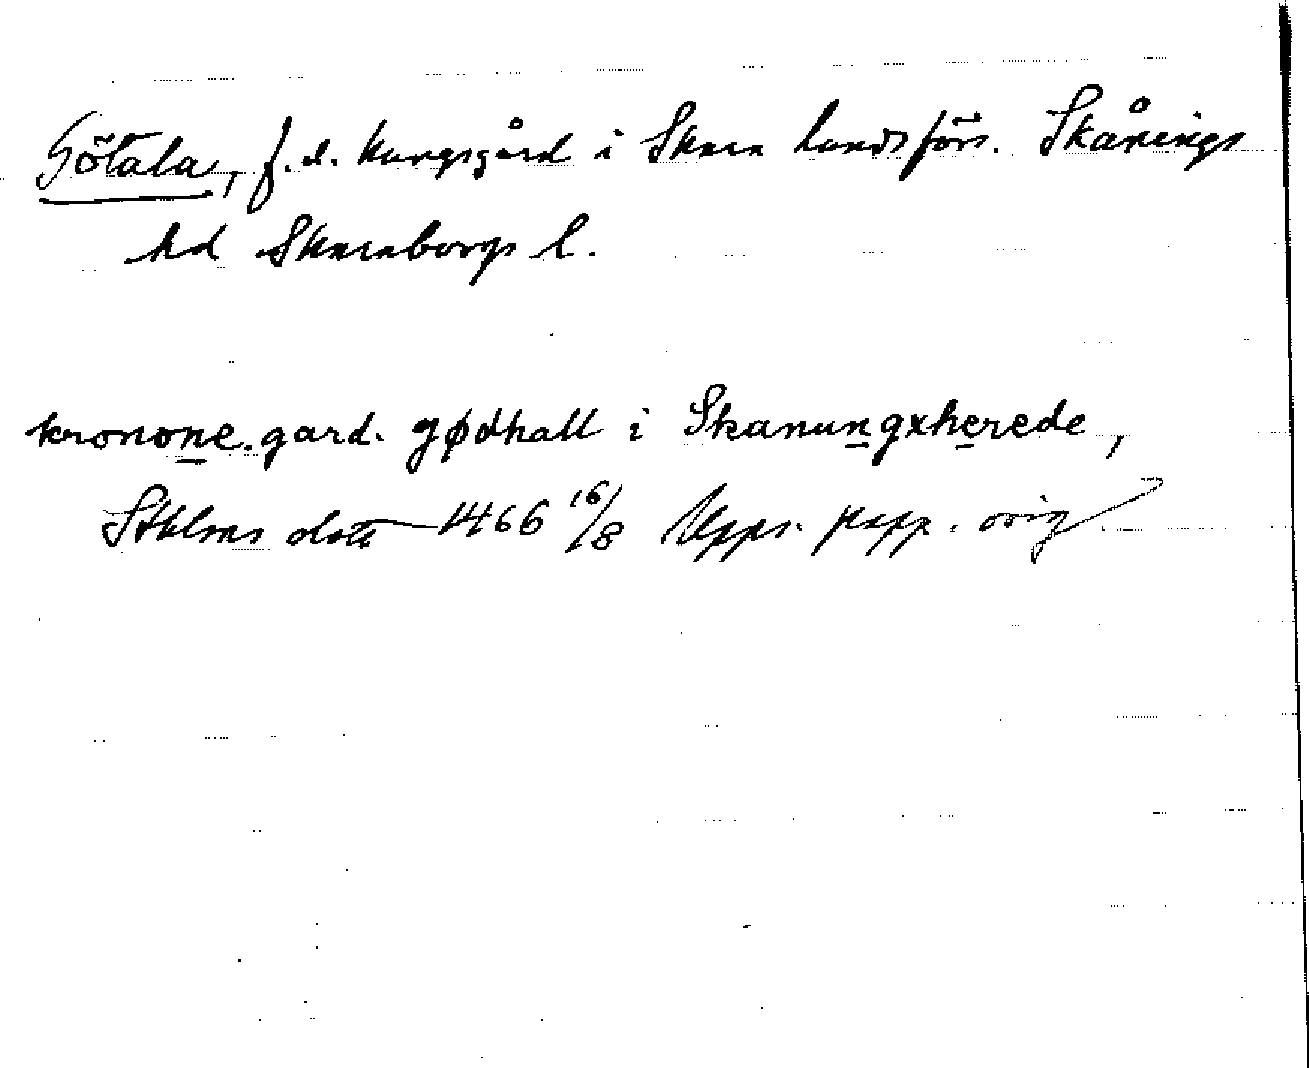 Götala, f.d. kungsgård i Skara landsförs. Skånings
hd Skaraborgs l.
kronone. gard. gødhall i Skanungxherede,
Sthlms dat 1466 16/8 Upps. papp. orig